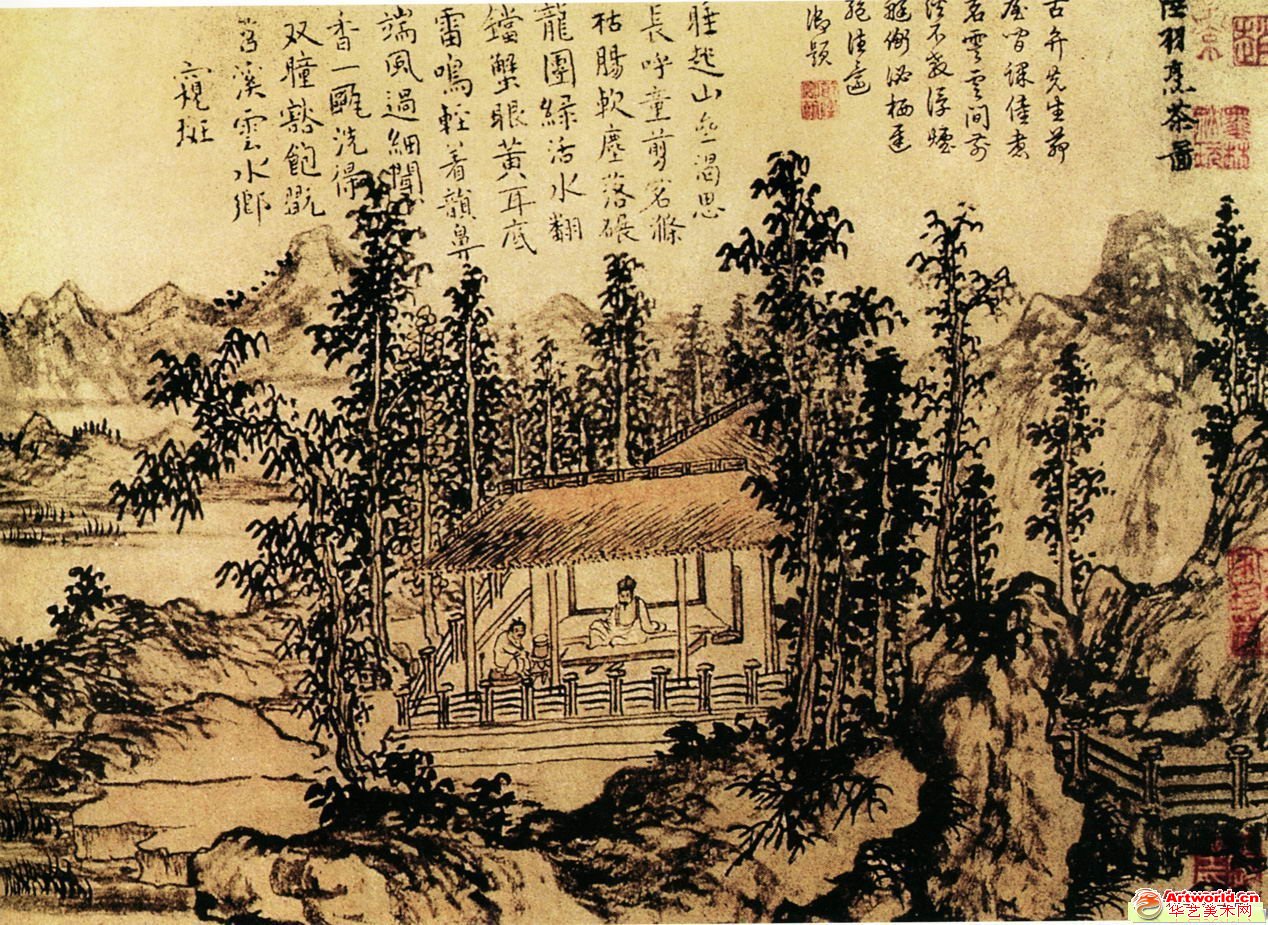 陸羽烹茶圖
古弁先生茅
屋閒課僮煮
茗雪雲間前
溪不教浮煙
艇衡泌棲遲
絕往還
御題
睡起山亝渴思
長呼童剪茗滌
枯腸軟塵落碾
龍團綠活水翻
鐺蟹眼黃耳底
雷鳴輕着韻鼻
端風過細聞
香一甌洗得
双瞳豁飽翫
苕溪雲水鄉
窺斑
Artworld.cn
华艺美术网